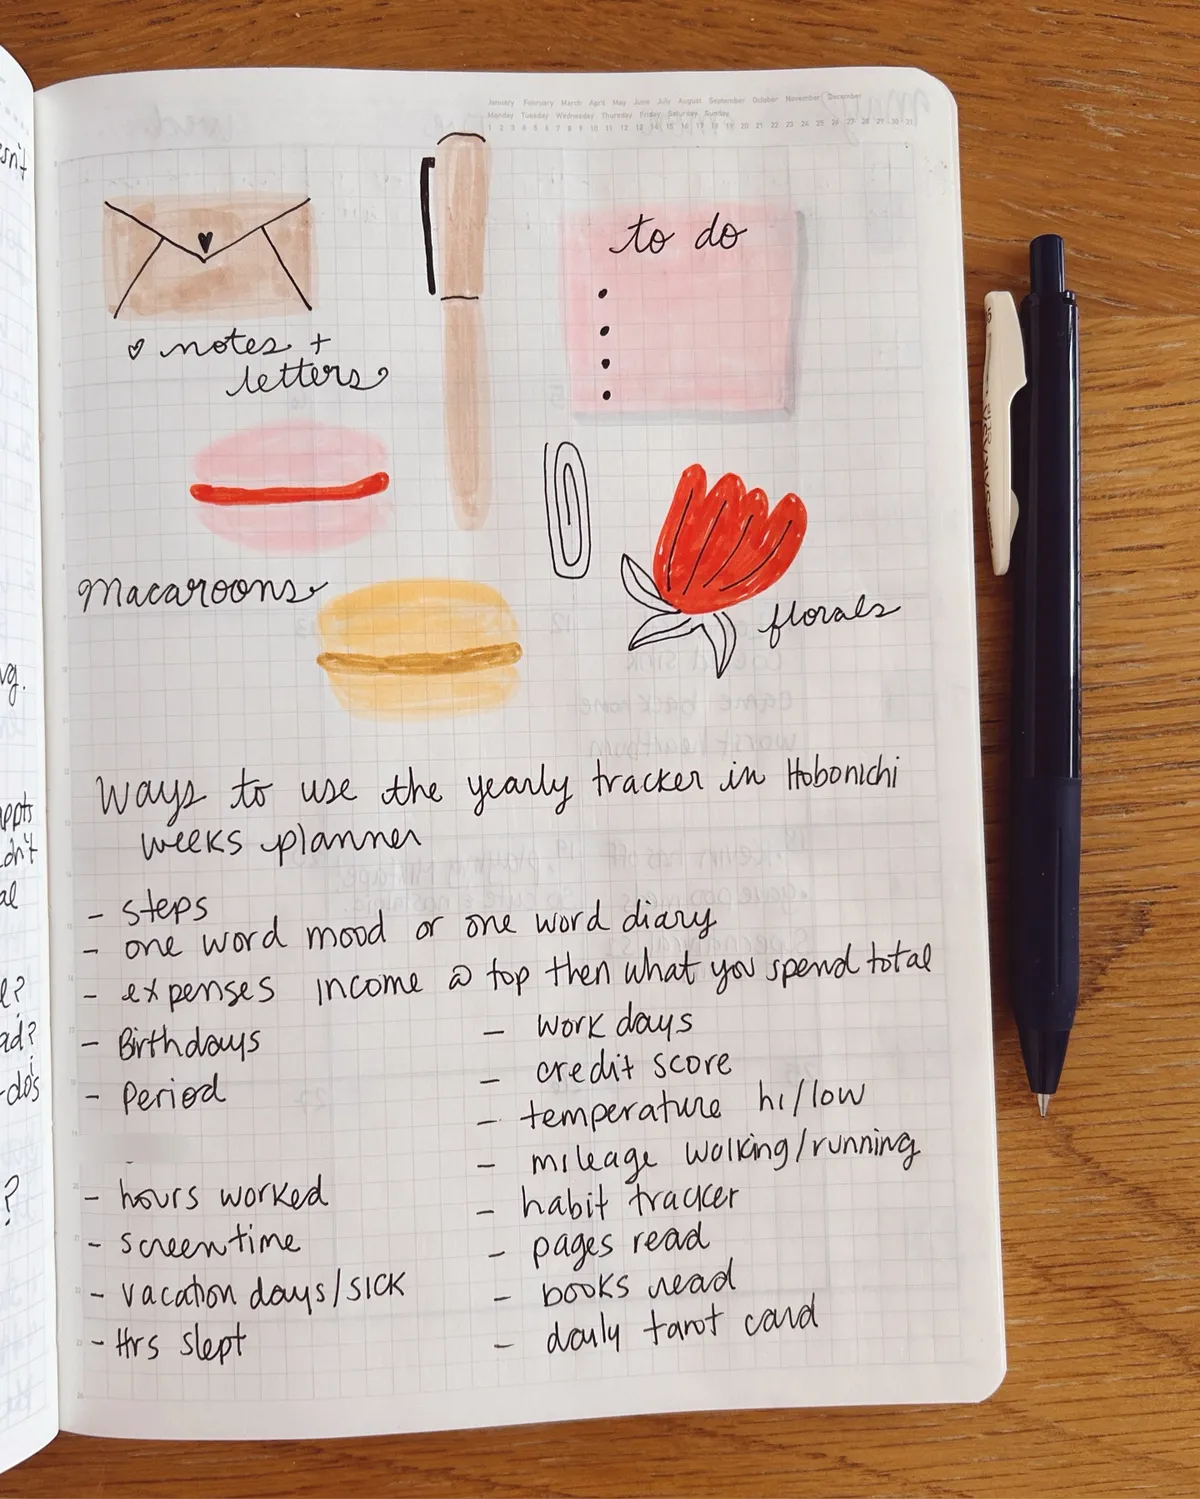 January February March April May June July August September October November December
Monday Tuesday Wednesday Thursday Friday Saturday Sunday
1 2 3 4 5 6 7 8 9 10 11 12 13 14 15 16 17 18 19 20 21 22 23 24 25 26 27 28 29 30 31
to do
notes +
letters
Macaroons
florals
Ways to use the yearly tracker in Hobonichi
weeks planner
- steps
- one word mood or one word diary
- expenses income @ top then what you spend total
- Birthdays
- Period
-
- hours worked
- screentime
- vacation days/SICK
- Hrs slept
- work days
- credit score
- temperature hi/low
- mileage walking/running
- habit tracker
- pages read
- books read
- daily tarot card